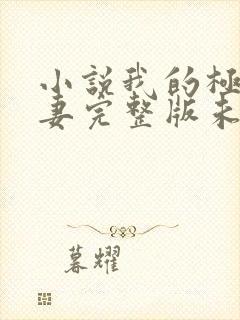 小說我的極
妻完整版未
暮耀